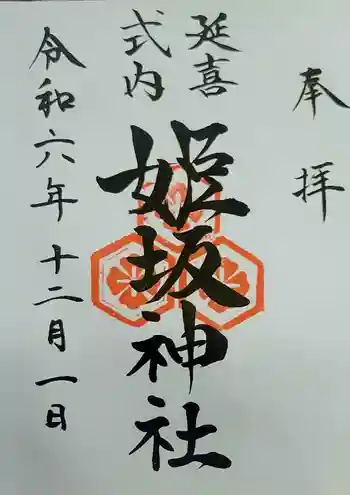 奉拝
延喜
式内
姫坂神社
令和六年十二月一日